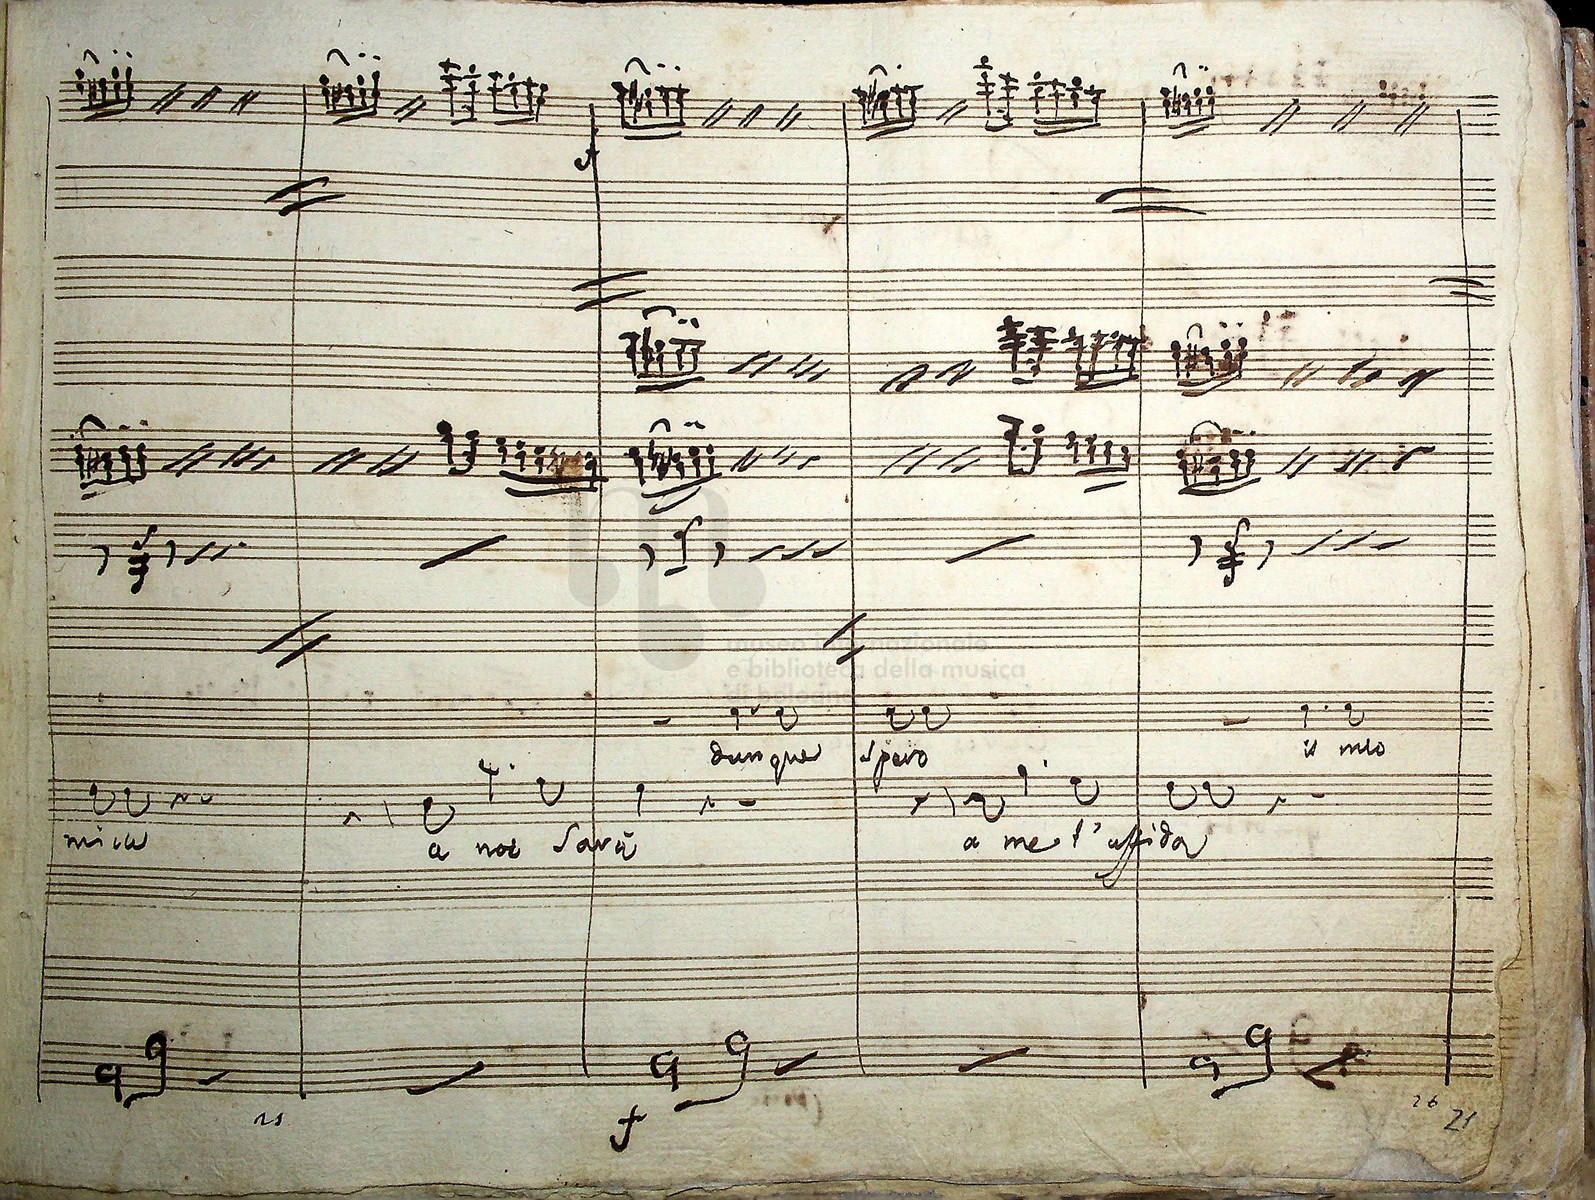 f
museo internazionale
e biblioteca della musica
di bologna
dunque spero
il mio
mica
a noi sarà
a me l'affida
f
21
26
21